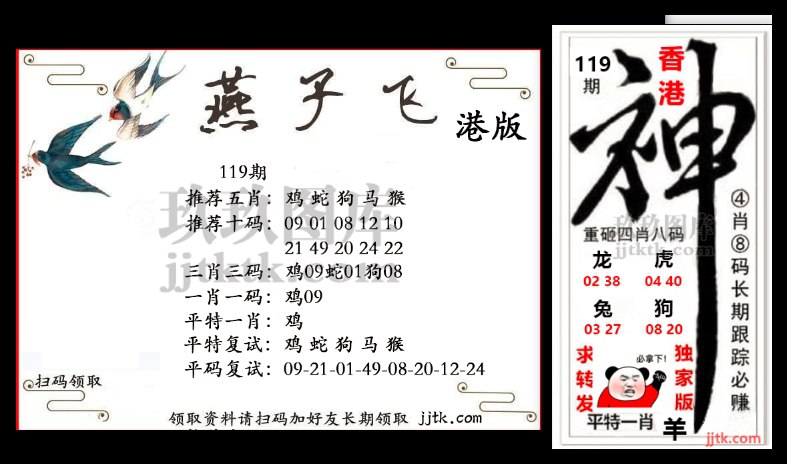 燕子飞
港版
119期
推荐五肖：鸡 蛇 狗 马 猴
推荐十码：09 01 08 12 10
21 49 20 24 22
三肖三码：鸡09蛇01狗08
一肖一码：鸡09
平特一肖：鸡
平特复试：鸡 蛇 狗 马 猴
平码复试：09-21-01-49-08-20-12-24
玖玖图库
jjtktk.com
扫码领取
领取资料请扫码加好友长期领取 jjtk.com
119
期
香港
神
④肖⑧码长期跟踪必赚
玖玖图库
jjtktk.com
重砸四肖八码
龙 虎
02 38 04 40
兔 狗
03 27 08 20
求转发
必拿下！
独家版
平特一肖 羊
jjtk.com